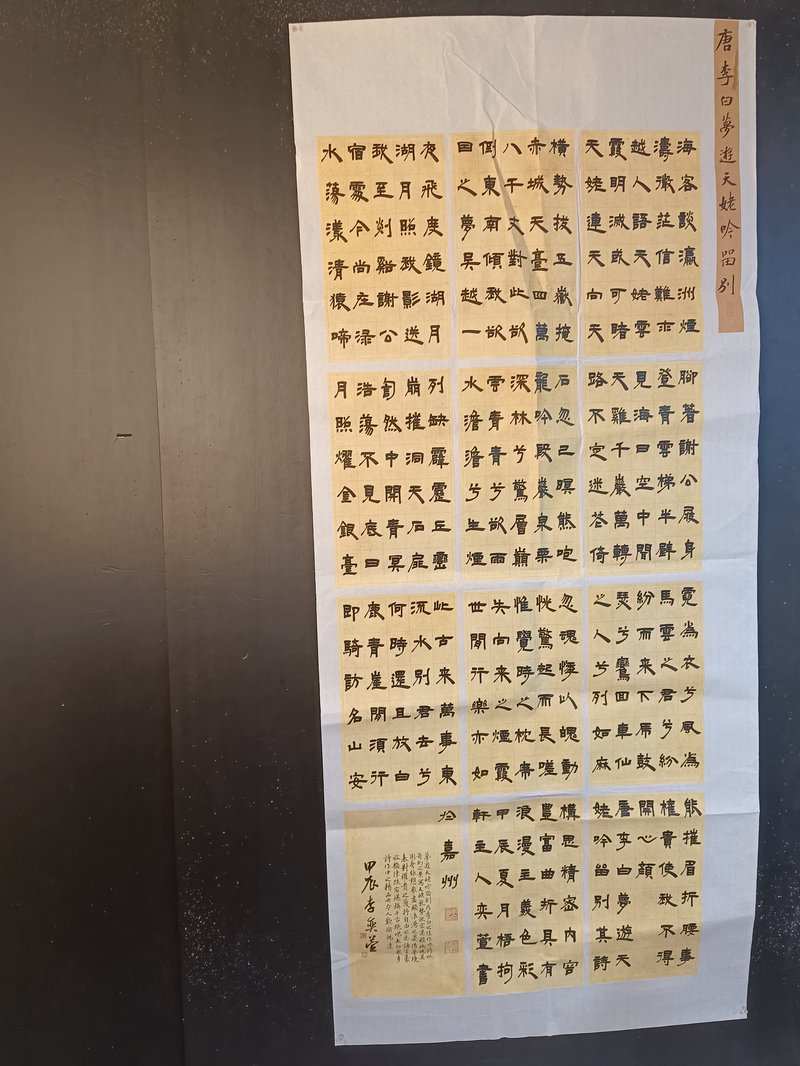 唐李白夢遊天姥吟留別
海客談瀛洲煙
濤微茫信難求
越人語天姥雲
霞明滅或可睹
天姥連天向天
橫勢拔五嶽掩
赤城天臺四萬
八千丈對此欲
倒東南傾我欲
因之夢吳越一
夜飛度鏡湖月
湖月照我影送
我至剡谿謝公
宿處今尚在淥
水蕩漾清猿啼
腳著謝公屐身
登青雲梯半壁
見海日空中聞
天雞千巖萬轉
路不定迷花倚
石忽已暝熊咆
龍吟殷巖泉栗
深林兮驚層巔
雲青青兮欲雨
水澹澹兮生煙
列缺霹靂丘巒
崩摧洞天石扉
訇然中開青冥
浩蕩不見底日
月照燿金銀臺
霓為衣兮風為
馬雲之君兮紛
紛而來下虎鼓
瑟兮鸞回車仙
之人兮列如麻
忽魂悸以魄動
恍驚起而長嗟
惟覺時之枕席
失向來之煙霞
世間行樂亦如
此古來萬事東
流水別君去兮
何時還且放白
鹿青崖間須行
即騎訪名山安
能摧眉折腰事
權貴使我不得
開心顏
唐李白夢遊天
姥吟留別其詩
構思精密內容
豐富曲折具有
浪漫主義色彩
甲辰夏月梧拘
軒主人奕萱書
於嘉州
甲辰李奕萱